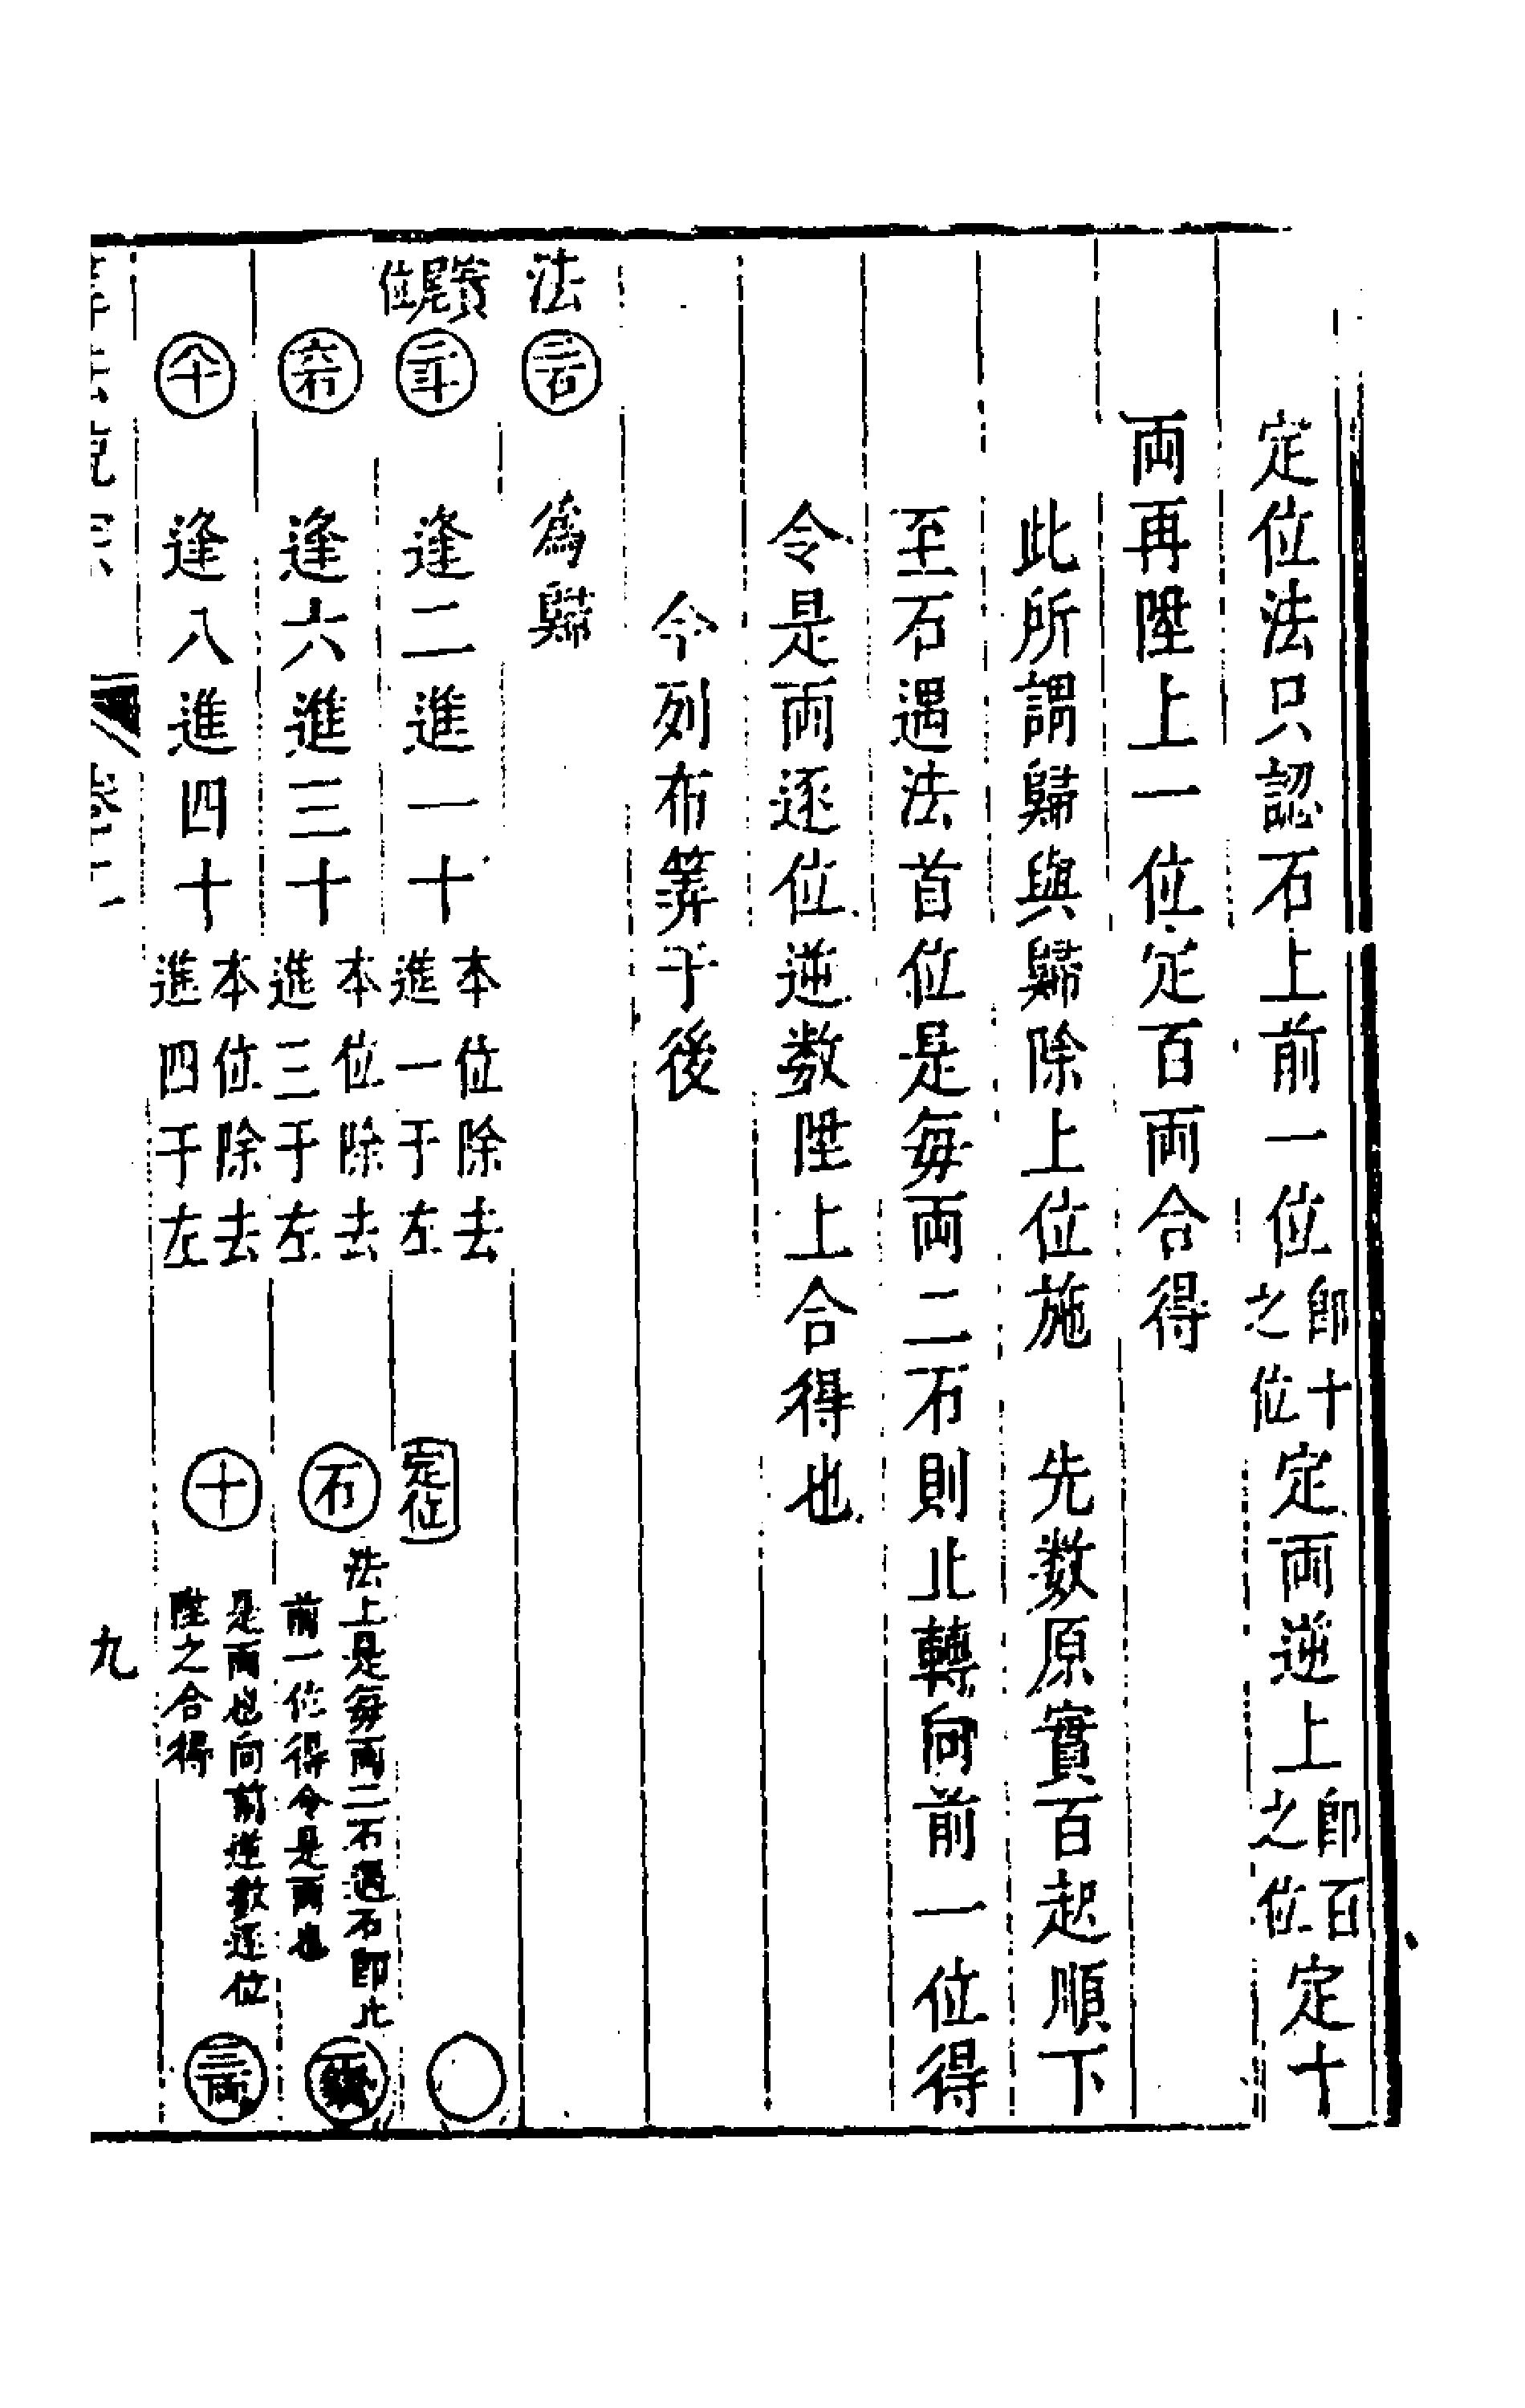 定位法只認石上前一位即十之位定両逆上即百之位定十
両再陞上一位定百両合得
此所謂歸與歸除上位施　先数原實百起順下
至石遇法首位是毎両二石則止轉向前一位得
令是両逐位逆数陞上合得也
今列布筭于後
法　二石　為歸
實尾位　二斗　逢二進一十　本位除去進一于左　定位
六石　逢六進三十　本位除去進三于左　石　法上是毎両二石遇石即止前一位得令是両也
八十　逢八進四十　本位除去進四于左　十　是両也向前逆数逐位陞之合得　三両
九